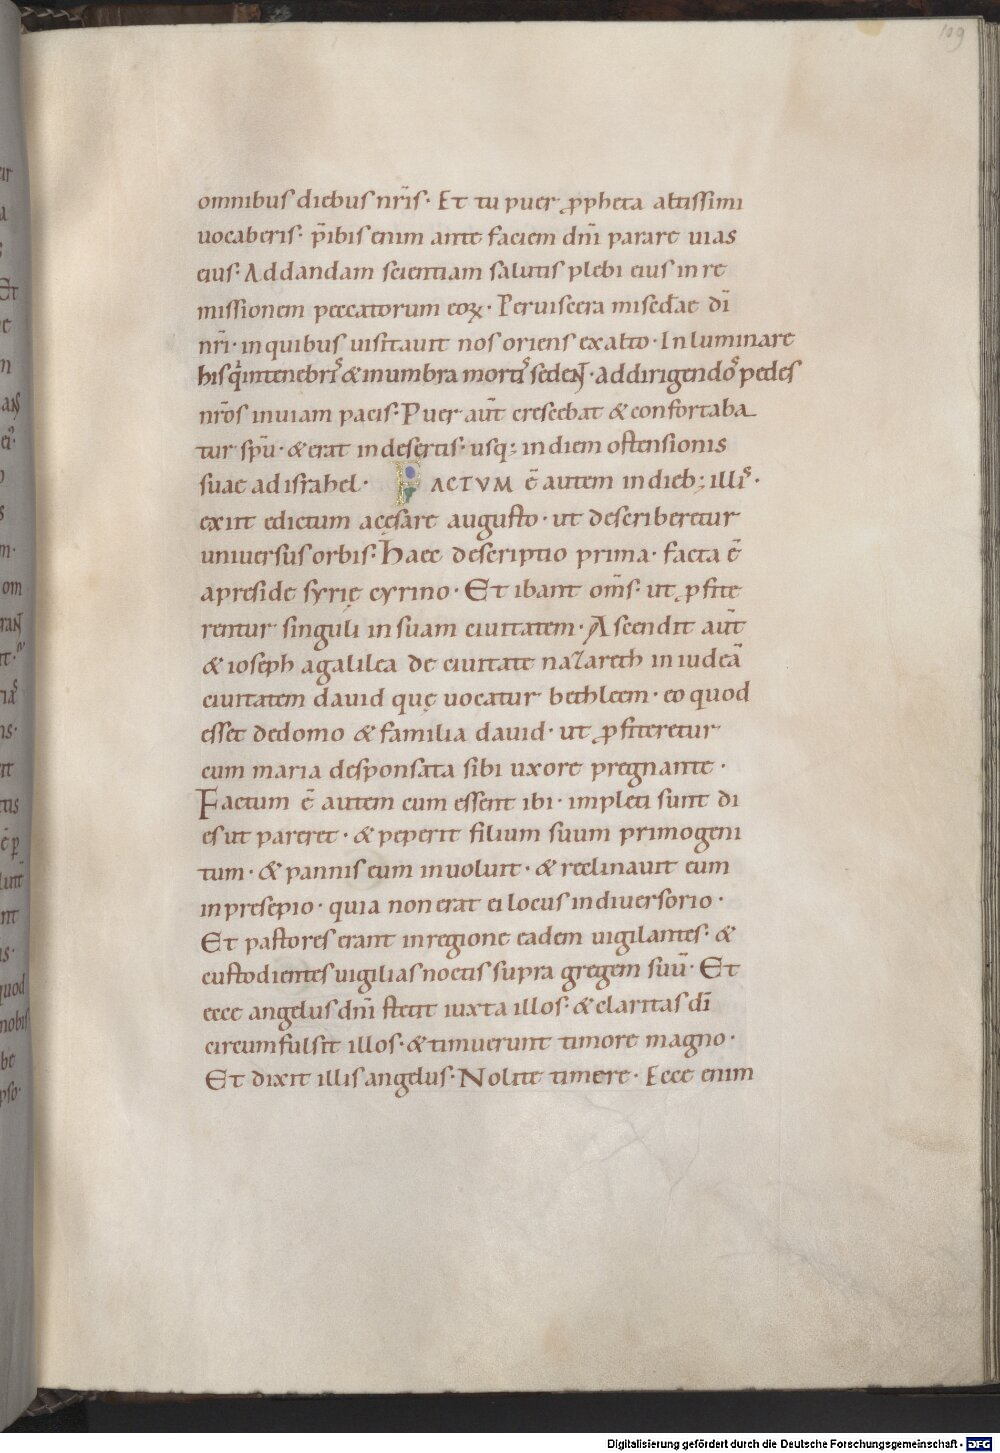 109
omnibus diebus nr̄is· Et tu puer ꝓpheta altissimi
uocaberis· p̄ibis enim ante faciem dn̄i parare uias
eius· Addandam scientiam salutis plebi eius inre
missionem peccatorum eoꝝ· Peruiscera misedae dī
nr̄i· inquibus uisitauit nos oriens exalto· Inluminare
his q̇ intenebrꝭ & inumbra mortꝭ sedeɴ̄t· addirigendoꝰ pedes
nr̄os inuiam pacis· Puer aūt crescebat & confortaba
tur spū· & erat indesertis· usq; indiem ostensionis
suae adisrahel· FACTVM ē autem indieb; illiꝭ·
exiit edictum acęsare augusto· ut describeretur
uniuersus orbis· Haec descriptio prima· facta ē
apreside syrię cyrino· Et ibant om̄s· ut ꝓfite
rentur singuli insuam ciuitatem· Ascendit aūt
& ioseph agalilea de ciuitate nazareth iniudeā
ciuitatem dauid quę uocatur bethleem· eo quod
esset dedomo & familia dauid· ut ꝓfiteretur
cum maria desponsata sibi uxore pregnante·
Factum ē autem cum essent ibi· impleti sunt di
es ut pareret· & peperit filium suum primogeni
tum· & pannis eum inuoluit· & reclinauit eum
inpresepio· quia nonerat ei locus indiuersorio·
Et pastores erant inregione eadem uigilantes· &
custodientes uigilias noctis supra gregem suū· Et
ecce angelus dn̄i stetit iuxta illos· & claritas dī
circumfulsit illos· & timuerunt timore magno·
Et dixit illis angelus· Nolite timere· Ecce enim
Digitalisierung gefördert durch die Deutsche Forschungsgemeinschaft - DFG